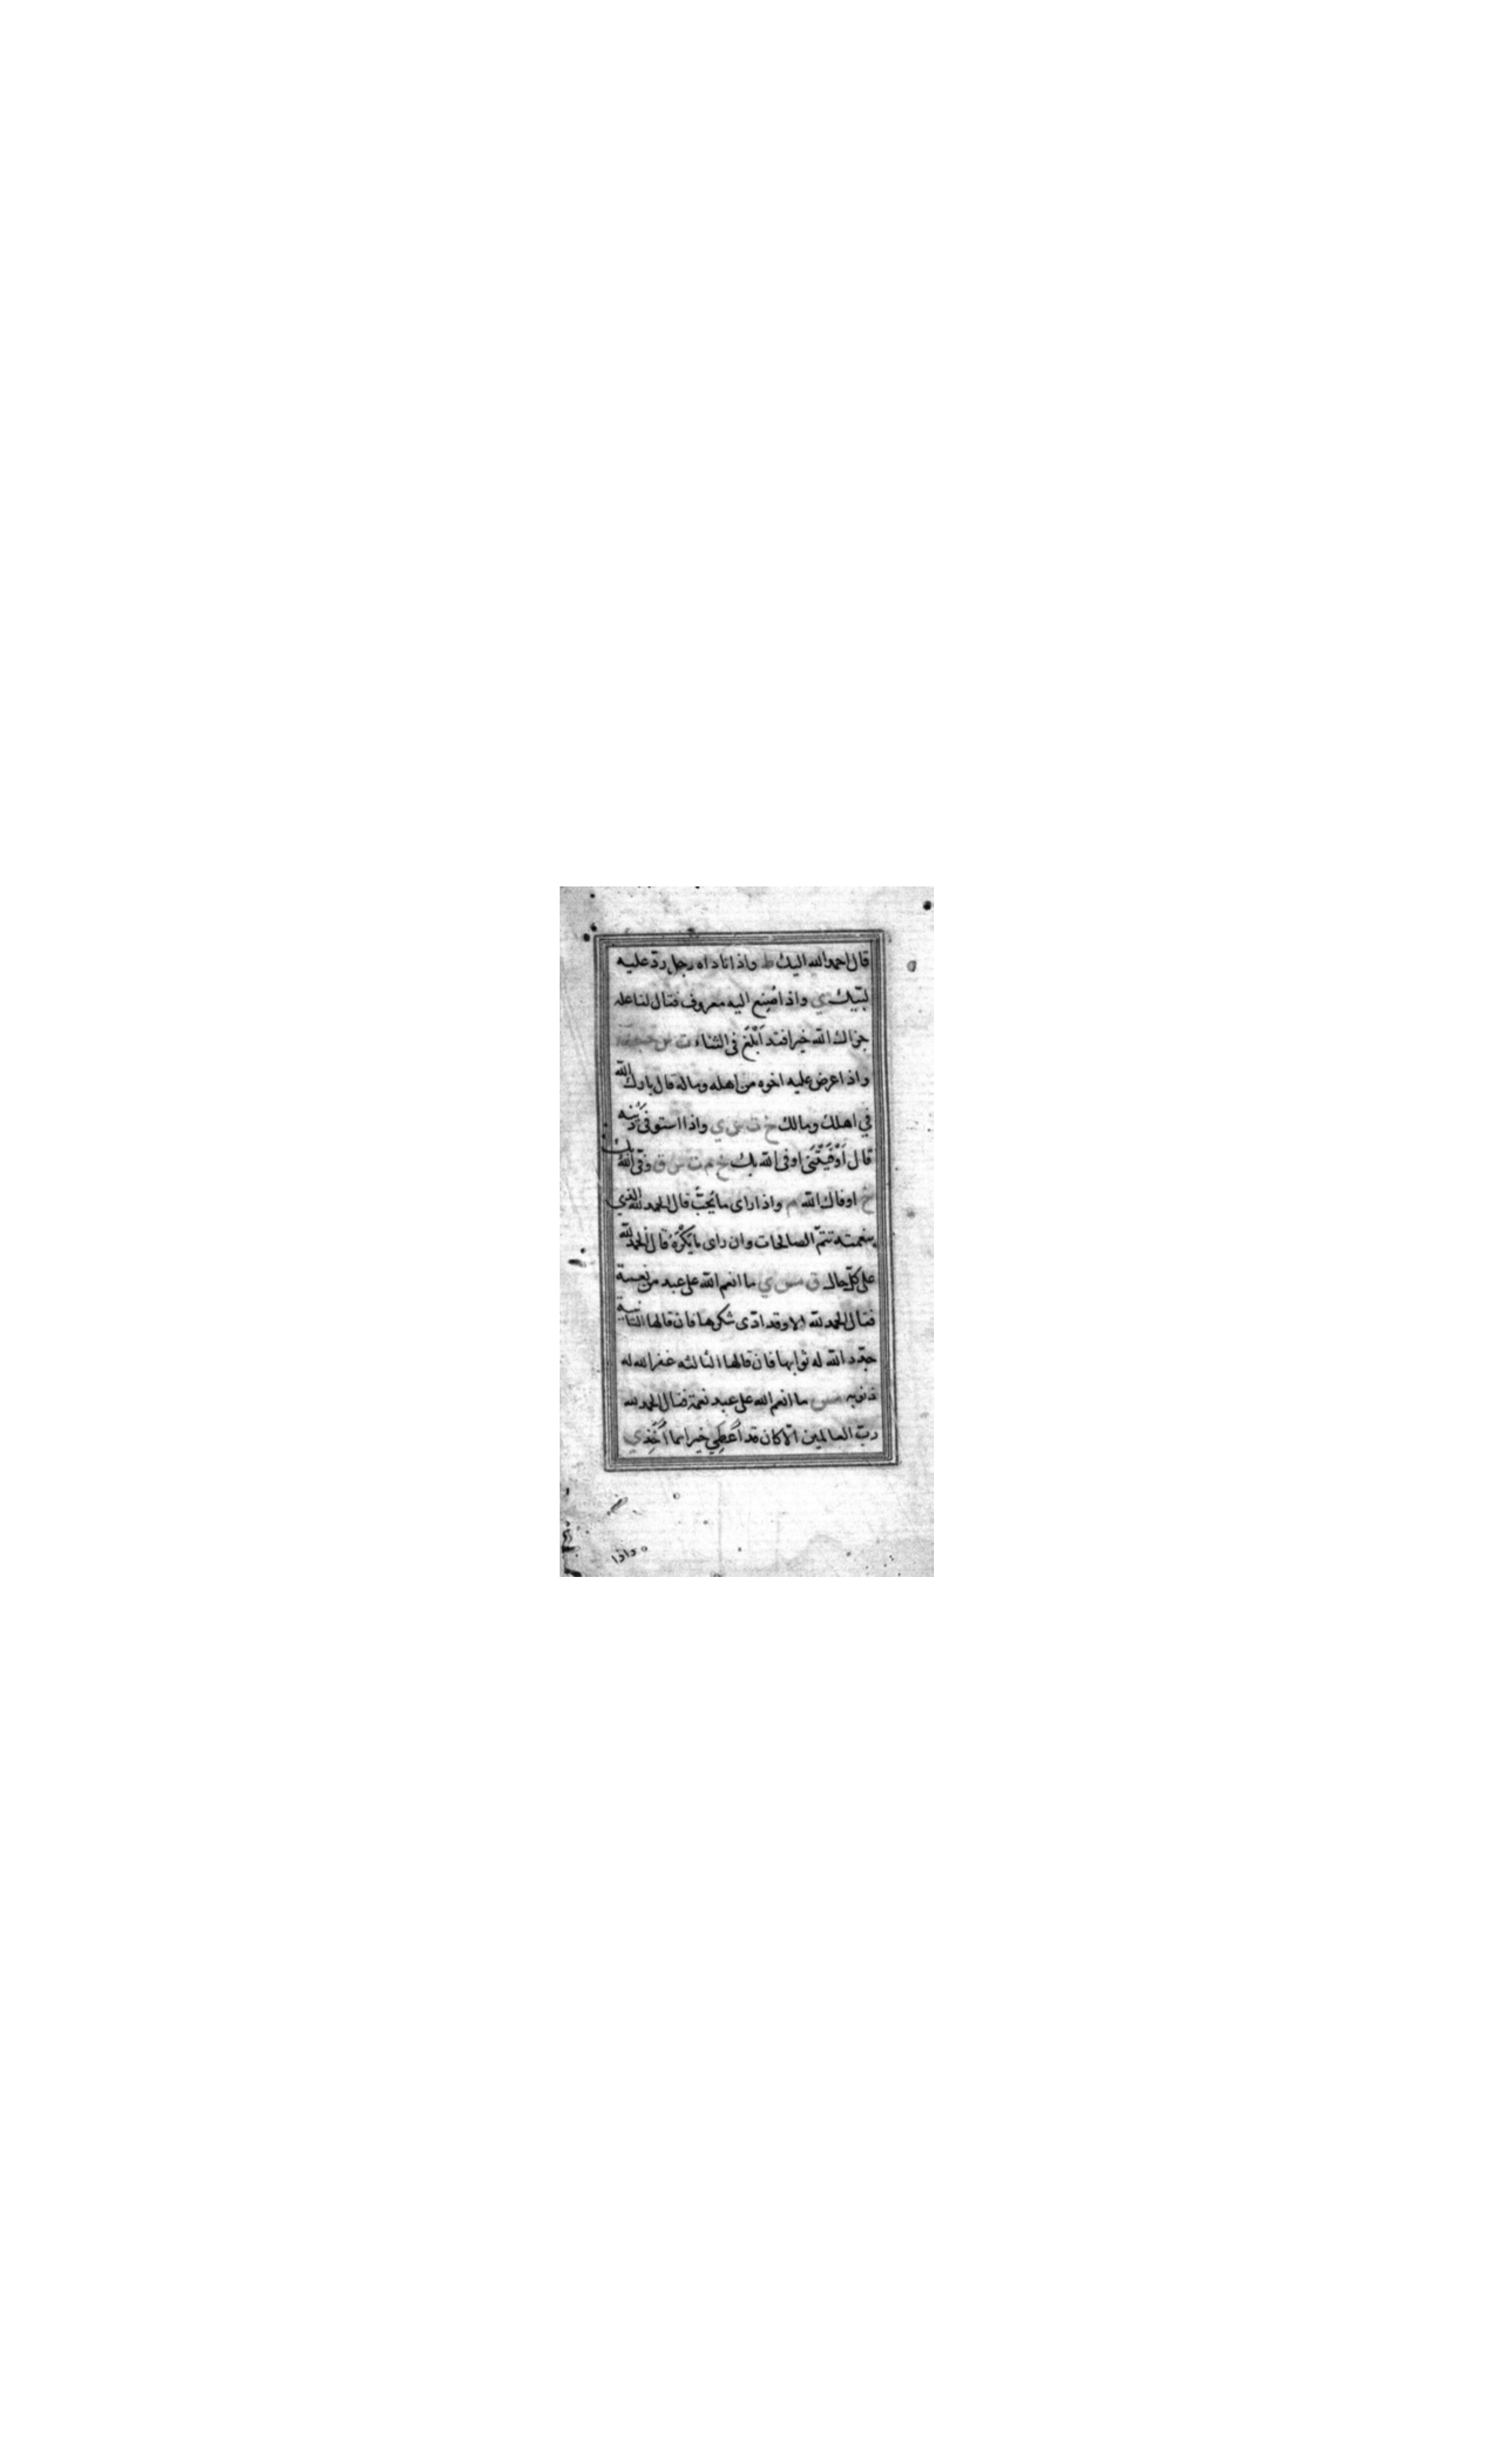 قال احمد الله اليك ط واذا ناداه رجل ردّ عليه
لبّيك ي واذا صُنِع اليه معروف فقال لفاعله
جزاك الله خيرا فقد اَبْلَغَ فى الثناء ت س حب
واذا عرض عليه اخوه من اهله وماله قال بارك الله
في اهلك ومالك خ ت س ي واذا استوفى دَيْنه
قال اَوْفَيْتَنى اوفى الله بك خ م ت س ق وفى الله بك
خ اوفاك الله م واذا راى ما يُحِبّ قال الحمد لله الذي
بنعمته تتمّ الصالحات وان راى ما يَكْرَهُ قال الحمد لله
على كلّ حال ق مس ي ما انعم الله على عبد من نعمة
فقال الحمد لله الا وقد ادّى شكرها فان قالها الثانية
جدّد الله له ثوابها فان قالها الثالثه غفر الله له
ذنوبه مس ما انعم الله على عبد نعمة فقال الحمد لله
ربّ العالمين الّا كان قد اُعْطِي خيرا مما اَخَذَ ي
واذا